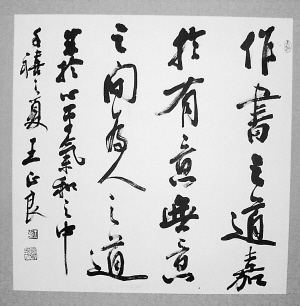 作書之道嘉
於有意無意
之間為人之道
美於心平氣和之中
千禧之夏 王正良